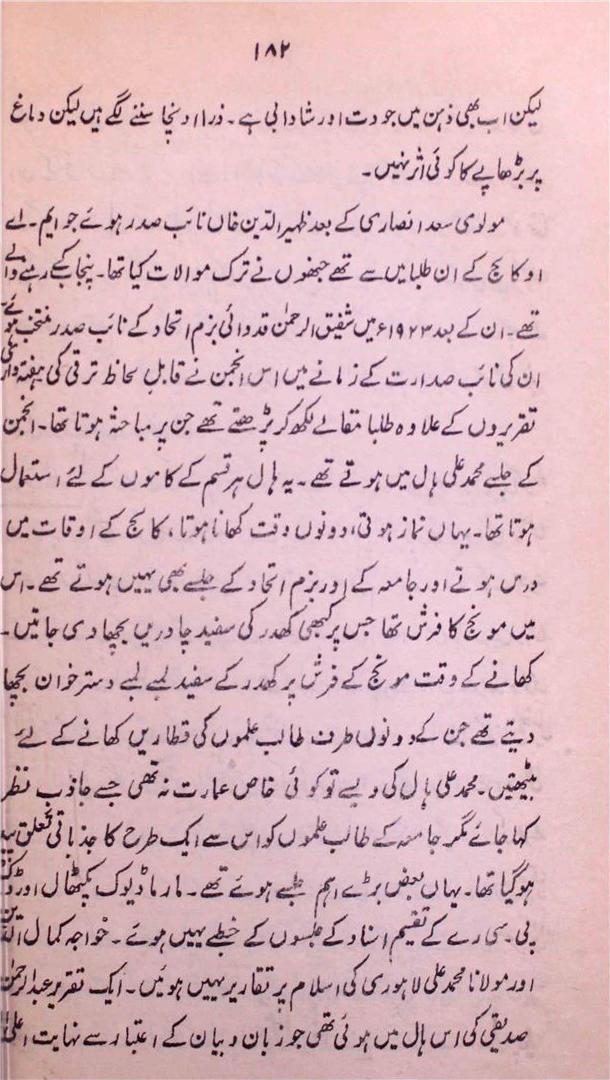 ۱۸۲
لیکن اب بھی ذہن میں جودت اور شادابی ہے۔ ذرا اونچا سننے لگے ہیں لیکن دماغ
پر بڑھاپے کا کوئی اثر نہیں۔
مولوی سعد انصاری کے بعد ظہیر الدین خاں نائب صدر ہوئے جو ایم۔ اے
او کالج کے ان طلبا میں سے تھے جنھوں نے ترک موالات کیا تھا۔ پنجاب کے رہنے والے
تھے۔ ان کے بعد ۱۹۲۳ء میں شفیق الرحمٰن قدوائی بزم اتحاد کے نائب صدر منتخب ہوئے۔
ان کی نائب صدارت کے زمانے میں اس انجمن نے قابلِ لحاظ ترقی کی ہفتہ وار
تقریروں کے علاوہ طلبا مقالے لکھ کر پڑھتے تھے جن پر مباحثہ ہوتا تھا۔ انجمن
کے جلسے محمد علی ہال میں ہوتے تھے۔ یہ ہال ہر قسم کے کاموں کے لئے استعمال
ہوتا تھا۔ یہاں نماز ہوتی، دونوں وقت کھانا ہوتا، کالج کے اوقات میں
درس ہوتے اور جامعہ کے اور بزم اتحاد کے جلسے بھی یہیں ہوتے تھے۔ اس
میں مونج کا فرش تھا جس پر کبھی کھدر کی سفید چادریں بچھا دی جاتیں۔
کھانے کے وقت مونج کے فرش پر کھدر کے سفید لمبے لمبے دسترخوان بچھا
دیتے تھے جن کے دونوں طرف طالب علموں کی قطاریں کھانے کے لئے
بیٹھتیں۔ محمد علی ہال کی ویسے تو کوئی خاص عمارت نہ تھی جسے جاذب نظر
کہا جائے مگر جامعہ کے طالب علموں کو اس سے ایک طرح کا جذباتی تعلق پیدا
ہو گیا تھا۔ یہاں بعض بڑے اہم جلسے ہوئے تھے۔ مارماڈیوک پکتھال اور
پی۔ سی رے کے تقسیم اسناد کے جلسوں کے خطبے یہیں ہوئے۔ خواجہ کمال الدین
اور مولانا محمد علی لاہوری کی اسلام پر تقاریر یہیں ہوئیں۔ ایک تقریر عبدالرحمٰن
صدیقی کی اس ہال میں ہوئی تھی جو زبان و بیان کے اعتبار سے نہایت اعلیٰ